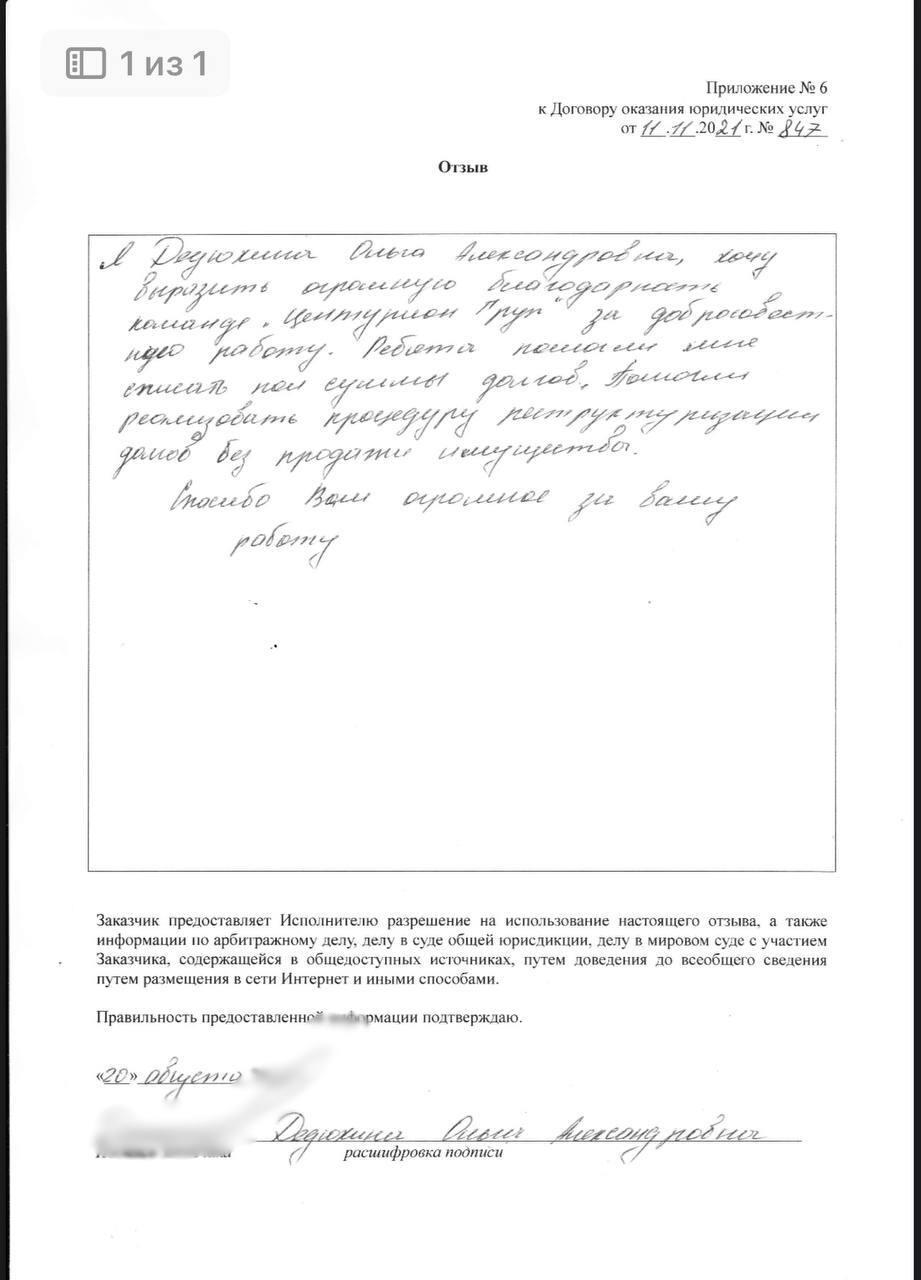 1 из 1
Приложение № 6
к Договору оказания юридических услуг
от 11.11.2021 г. № 847
Отзыв
Я Дедюхина Ольга Александровна, хочу
выразить огромную благодарность
команде „Центурион Груп“ за добросовест-
ную работу. Ребята помогли мне
списать пол суммы долгов. Помогли
реализовать процедуру реструктуризации
долгов без продажи имущества.
Спасибо Вам огромное за вашу
работу
Заказчик предоставляет Исполнителю разрешение на использование настоящего отзыва, а также
информации по арбитражному делу, делу в суде общей юрисдикции, делу в мировом суде с участием
Заказчика, содержащейся в общедоступных источниках, путем доведения до всеобщего сведения
путем размещения в сети Интернет и иными способами.
Правильность предоставленной информации подтверждаю.
«20» августа
Дедюхина Ольга Александровна
расшифровка подписи